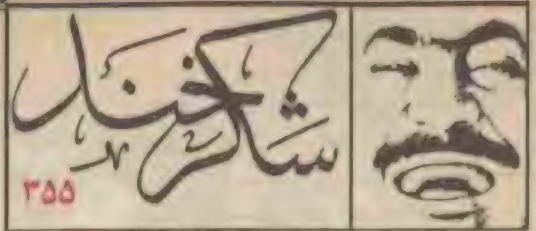 شاکر خند
۳۵۵